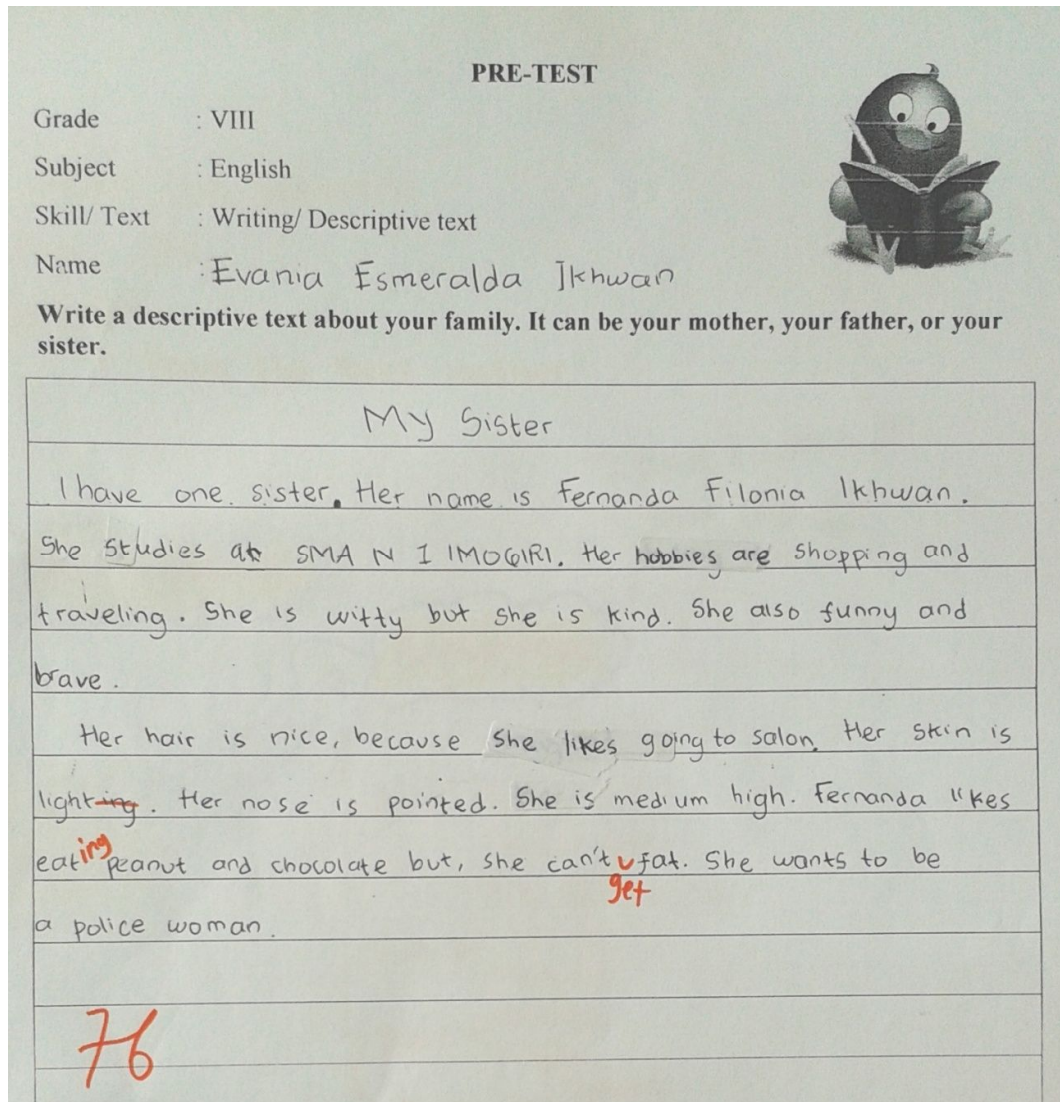 PRE-TEST
Grade : VIII
Subject : English
Skill/ Text : Writing/ Descriptive text
Name : Evania Esmeralda Ikhwan
Write a descriptive text about your family. It can be your mother, your father, or your
sister.
My Sister
I have one sister. Her name is Fernanda Filonia Ikhwan.
She studies at SMA N 1 IMOGIRI. Her hobbies are shopping and
traveling. She is witty but she is kind. She also funny and
brave.
Her hair is nice, because she likes going to salon. Her skin is
lighting. Her nose is pointed. She is medium high. Fernanda likes
eating peanut and chocolate but, she can't get fat. She wants to be
a police woman.
76